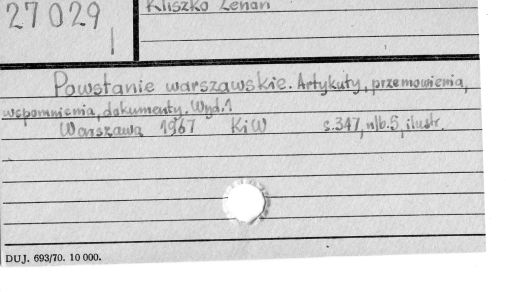 27029
Kliszko Zenan
Powstanie warszawskie. Artykuły, przemowienia,
wspomnienia, dokumenty. Wyd. 1
Warszawa 1967 KiW s. 347, nlb. 5, ilustr.
DUJ. 693/70. 10 000.